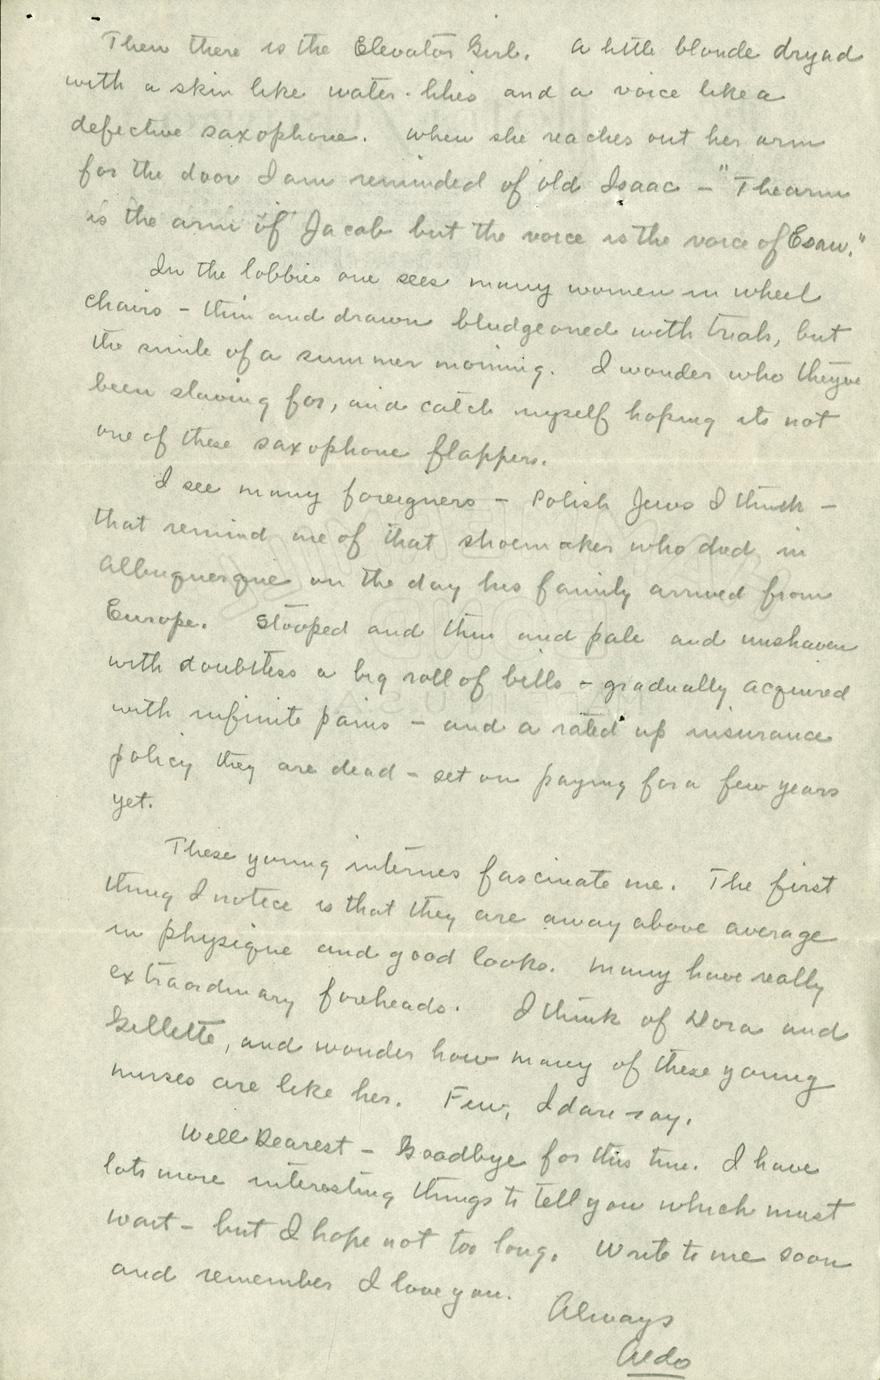 Then there is the Elevator Girl. A little blonde dryad
with a skin like water-lilies and a voice like a
defective saxophone. When she reaches out her arm
for the door I am reminded of old Isaac – "The arm
is the arm of Jacob but the voice is the voice of Esau."
In the lobbies one sees many women in wheel
chairs – thin and drawn bludgeoned with trials, but
the smile of a summer morning. I wonder who theyve
been slaving for, and catch myself hoping its not
one of these saxophone flappers.
I see many foreigners – Polish Jews I think –
that remind me of that shoemaker who died in
Albuquerque on the day his family arrived from
Europe. Stooped and thin and pale and unshaven
with doubtless a big roll of bills – gradually acquired
with infinite pains – and a rated up insurance
policy they are dead-set on paying for a few years
yet.
These young internes fascinate me. The first
thing I notice is that they are away above average
in physique and good looks. Many have really
extraordinary foreheads. I think of Dora and
Gillette, and wonder how many of these young
nurses are like her. Few, I dare say.
Well Dearest – Goodbye for this time. I have
lots more interesting things to tell you which must
wait – but I hope not too long. Write to me soon
and remember I love you.
Always
Aldo